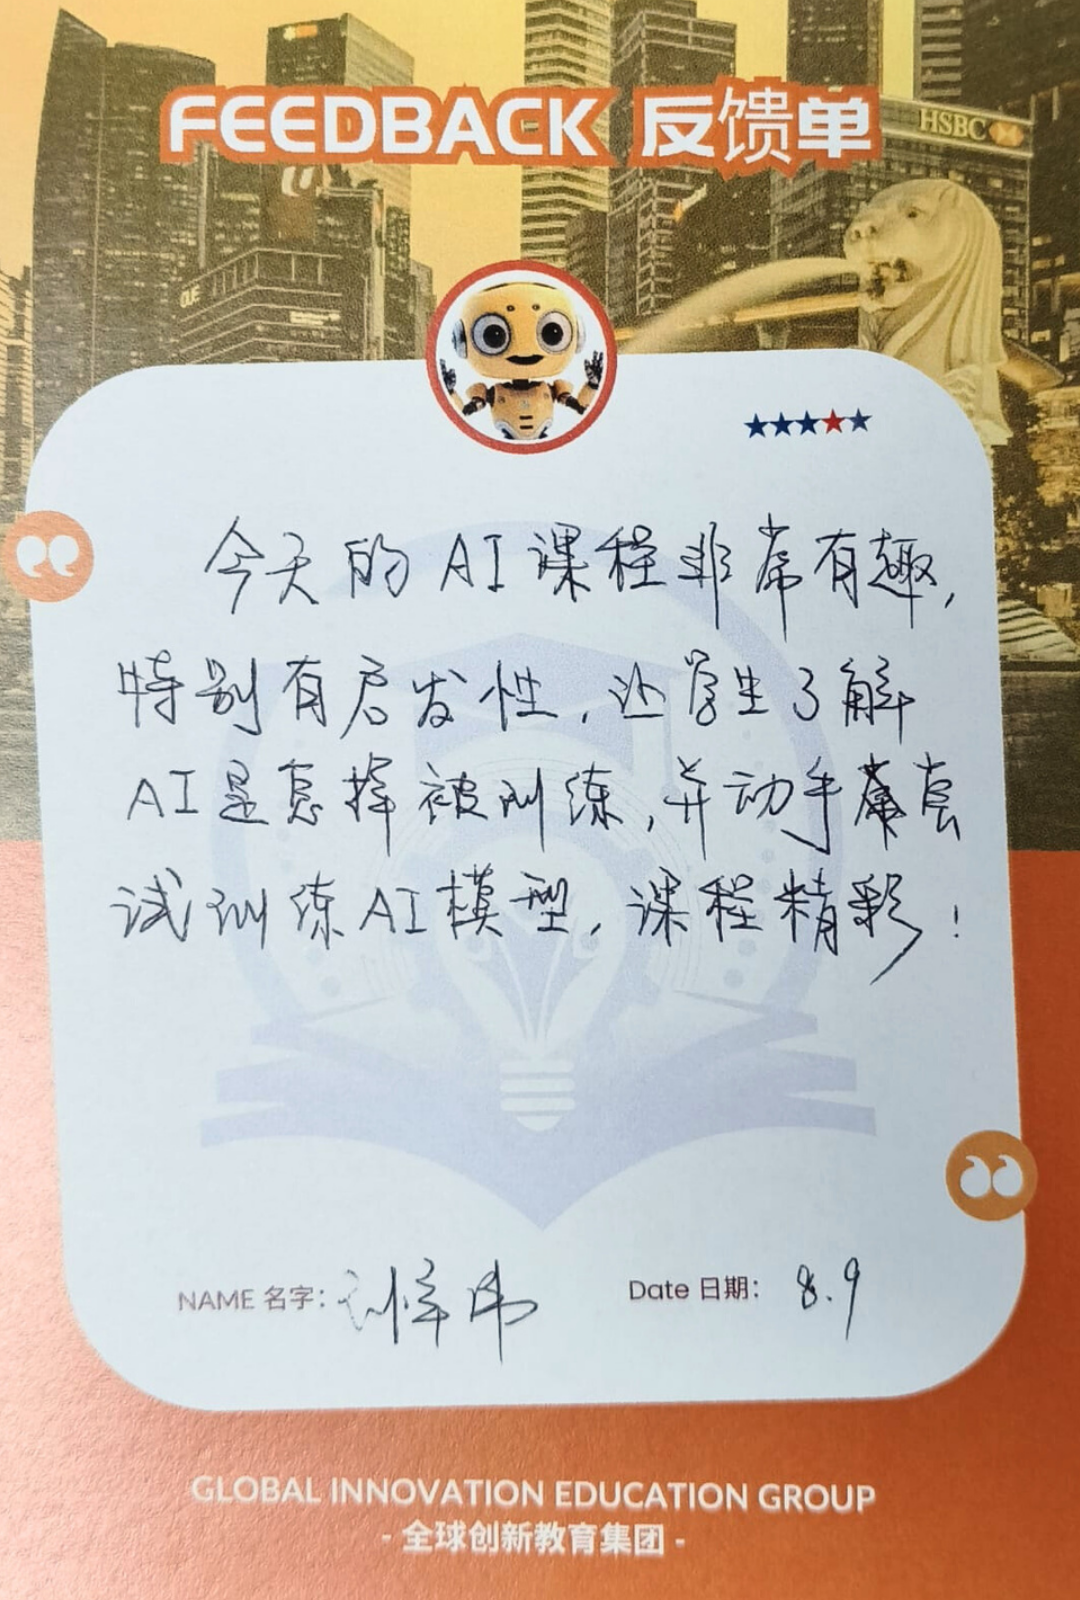 FEEDBACK 反馈单
HSBC
OUE
今天的AI课程非常有趣,
特别有启发性,让学生了解
AI是怎样被训练,并动手尝
试训练AI模型,课程精彩!
NAME 名字:
Date 日期: 8.9
GLOBAL INNOVATION EDUCATION GROUP
- 全球创新教育集团 -